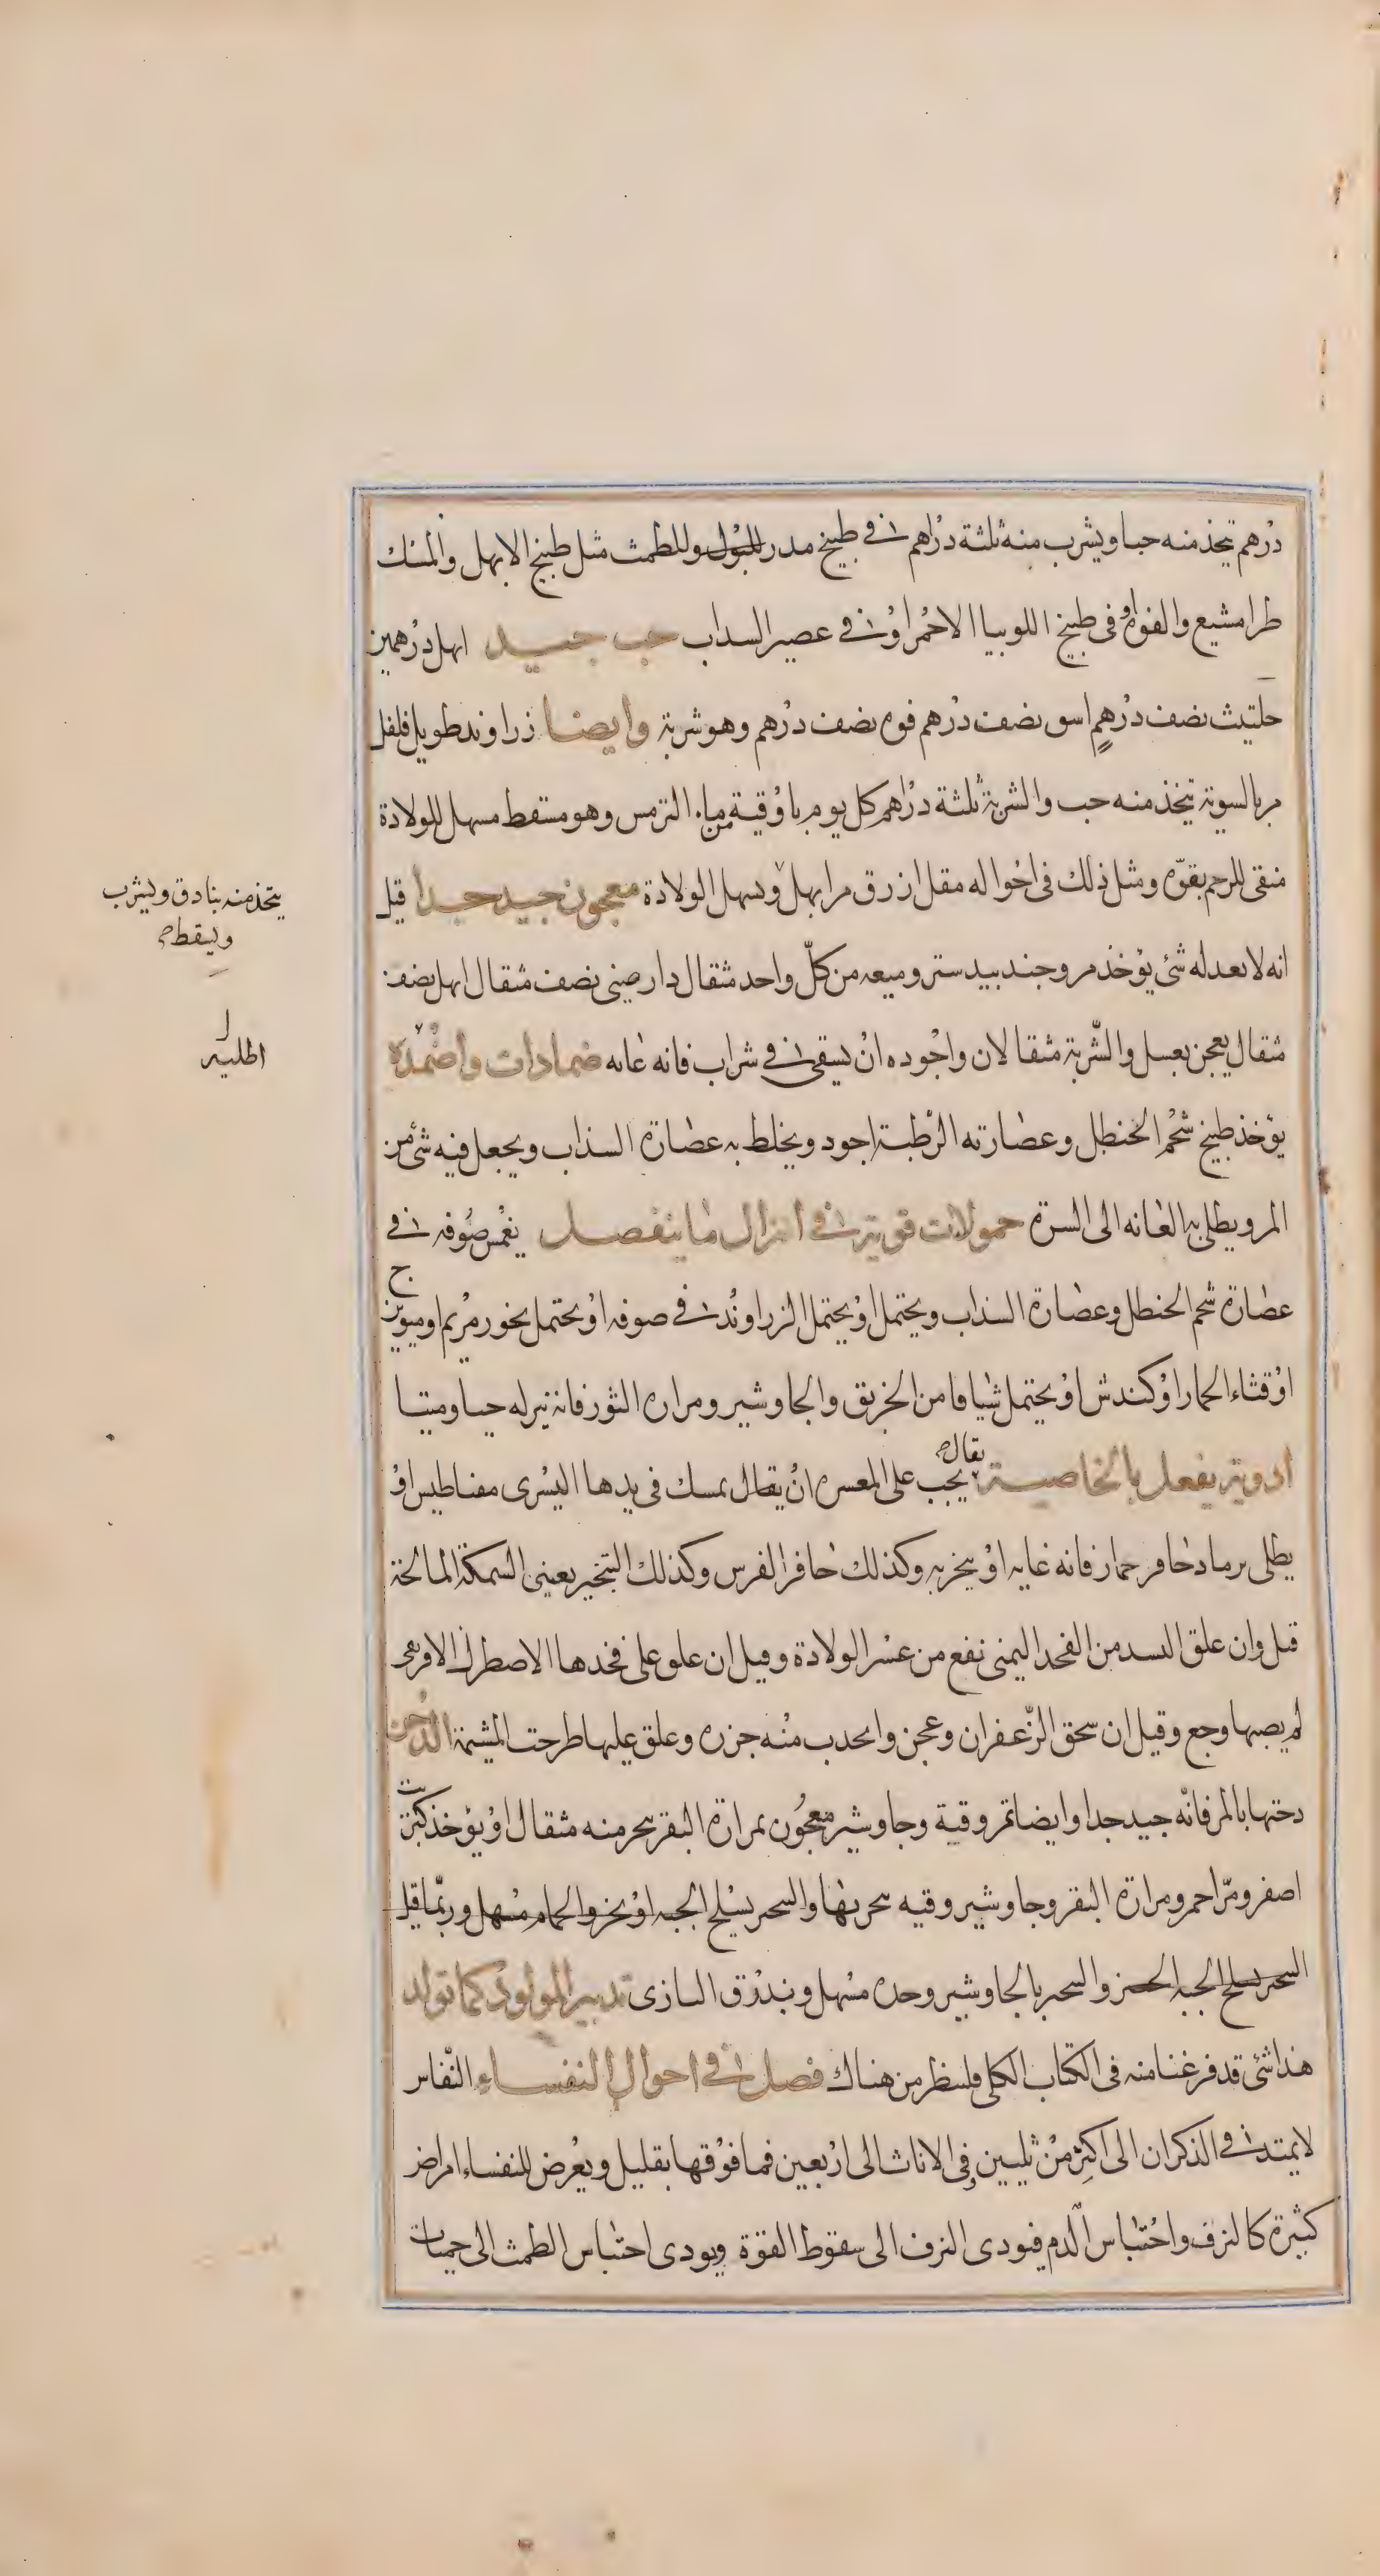 درهم يتخذ منه حبا ويشرب منه ثلثة دراهم في طبيخ مدر للبول وللطمث مثل طبيخ الابهل والمشك
طرامشيع والفواه او في طبيخ اللوبيا الاحمر او في عصير السداب حب جيد ابهل درهمين
حلتيث نصف درهم اسو نصف درهم فوه نصف درهم وهو شربة وايضا زراوند طويل فلفل
مر بالسوية يتخذ منه حب والشربة ثلثة دراهم كل يوم باوقية من ماء الترمس وهو مسقط مسهل للولادة
منقى للرحم بقوة ومثل ذلك في احواله مقل ازرق مر ابهل ويسهل الولادة معجون جيد جيدا قيل
انه لا يعدله شئ يؤخذ مر وجندبيدستر وميعه من كل واحد مثقال دارصيني نصف مثقال ابهل نصف
مثقال يعجن بعسل والشربة مثقالان واجوده ان يسقى في شراب فانه غايه ضمادات واضمدة
يؤخذ طبيخ شحم الحنطل وعصارته الرطبة اجود ويخلط به عصارة السذاب ويجعل فيه شئ من
المر ويطلى به العانه الى السرة حمولات قوية في انزال ما ينفصل يغمس صوفه في
عصارة شحم الحنطل وعصارة السذاب ويحتمل او يحتمل الزراوند في صوفه او يحتمل بخور مريم او ميويزج
او قثاء الحمار او كندش او يحتمل شيافا من الخربق والجاوشير ومراره الثور فانه ينزله حيا وميتا
ادوية يفعل بالخاصية يقال يجب على المعسره ان يقال يمسك في يدها اليسرى مغناطيس او
يطلى برماد حافر حمار فانه غايه او يبخر به وكذلك حافر الفرس وكذلك التبخير بعيني السمكة المالحة
قيل وان علق البسد من الفخد اليمنى نفع من عسر الولادة وقيل ان علق على فخدها الاصطرك الافريقي
لم يصبها وجع وقيل ان سحق الزعفران وعجن واتخذت منه خرزه وعلق عليها طرحت المشيمة الدخن
دخنها بالمر فانه جيد جدا وايضا بمر وقنة وجاوشير معجون بمرارة البقر يبخر منه مثقال او يؤخذ كبريت
اصفر ومر احمر ومرارة البقر وجاوشير وقنه يبخر بها والتبخر بسلخ الحية او بخرو الحمام مسهل وربما قتل
التبخر بسلخ الحية الجنين والتبخر بالجاوشير وحده مسهل وبذرق البازى تدبير المولود كما تولد
هذا شئ قد فرغنا منه في الكتاب الكلي فلينظر من هناك فصل في احوال النفساء النفاس
لا يمتد في الذكران الى اكثر من ثلثين وفي الاناث الى اربعين فما فوقها بقليل ويعرض للنفساء امراض
كثيرة كالنزف واحتباس الدم فيودى النزف الى سقوط القوة ويودى احتباس الطمث الى حميات
يتخذ منه بنادق ويشرب
ويسقط ح
اطليه